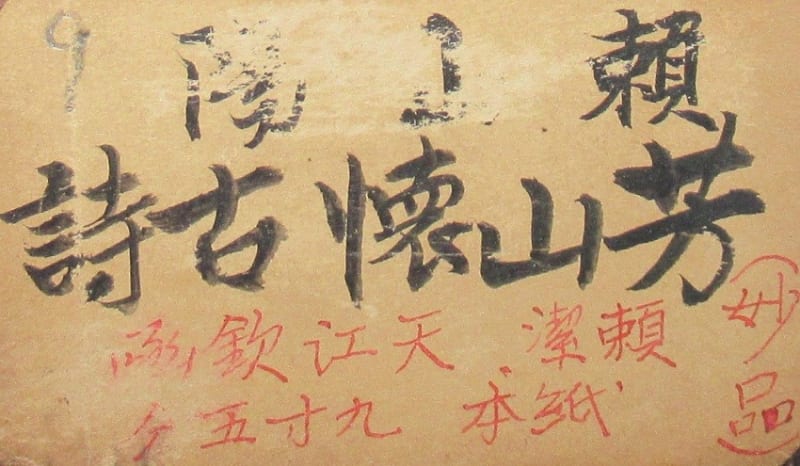 賴山陽 9
芳山懷古詩
(妙品)
賴潔 天江欽
紙本 九寸五分